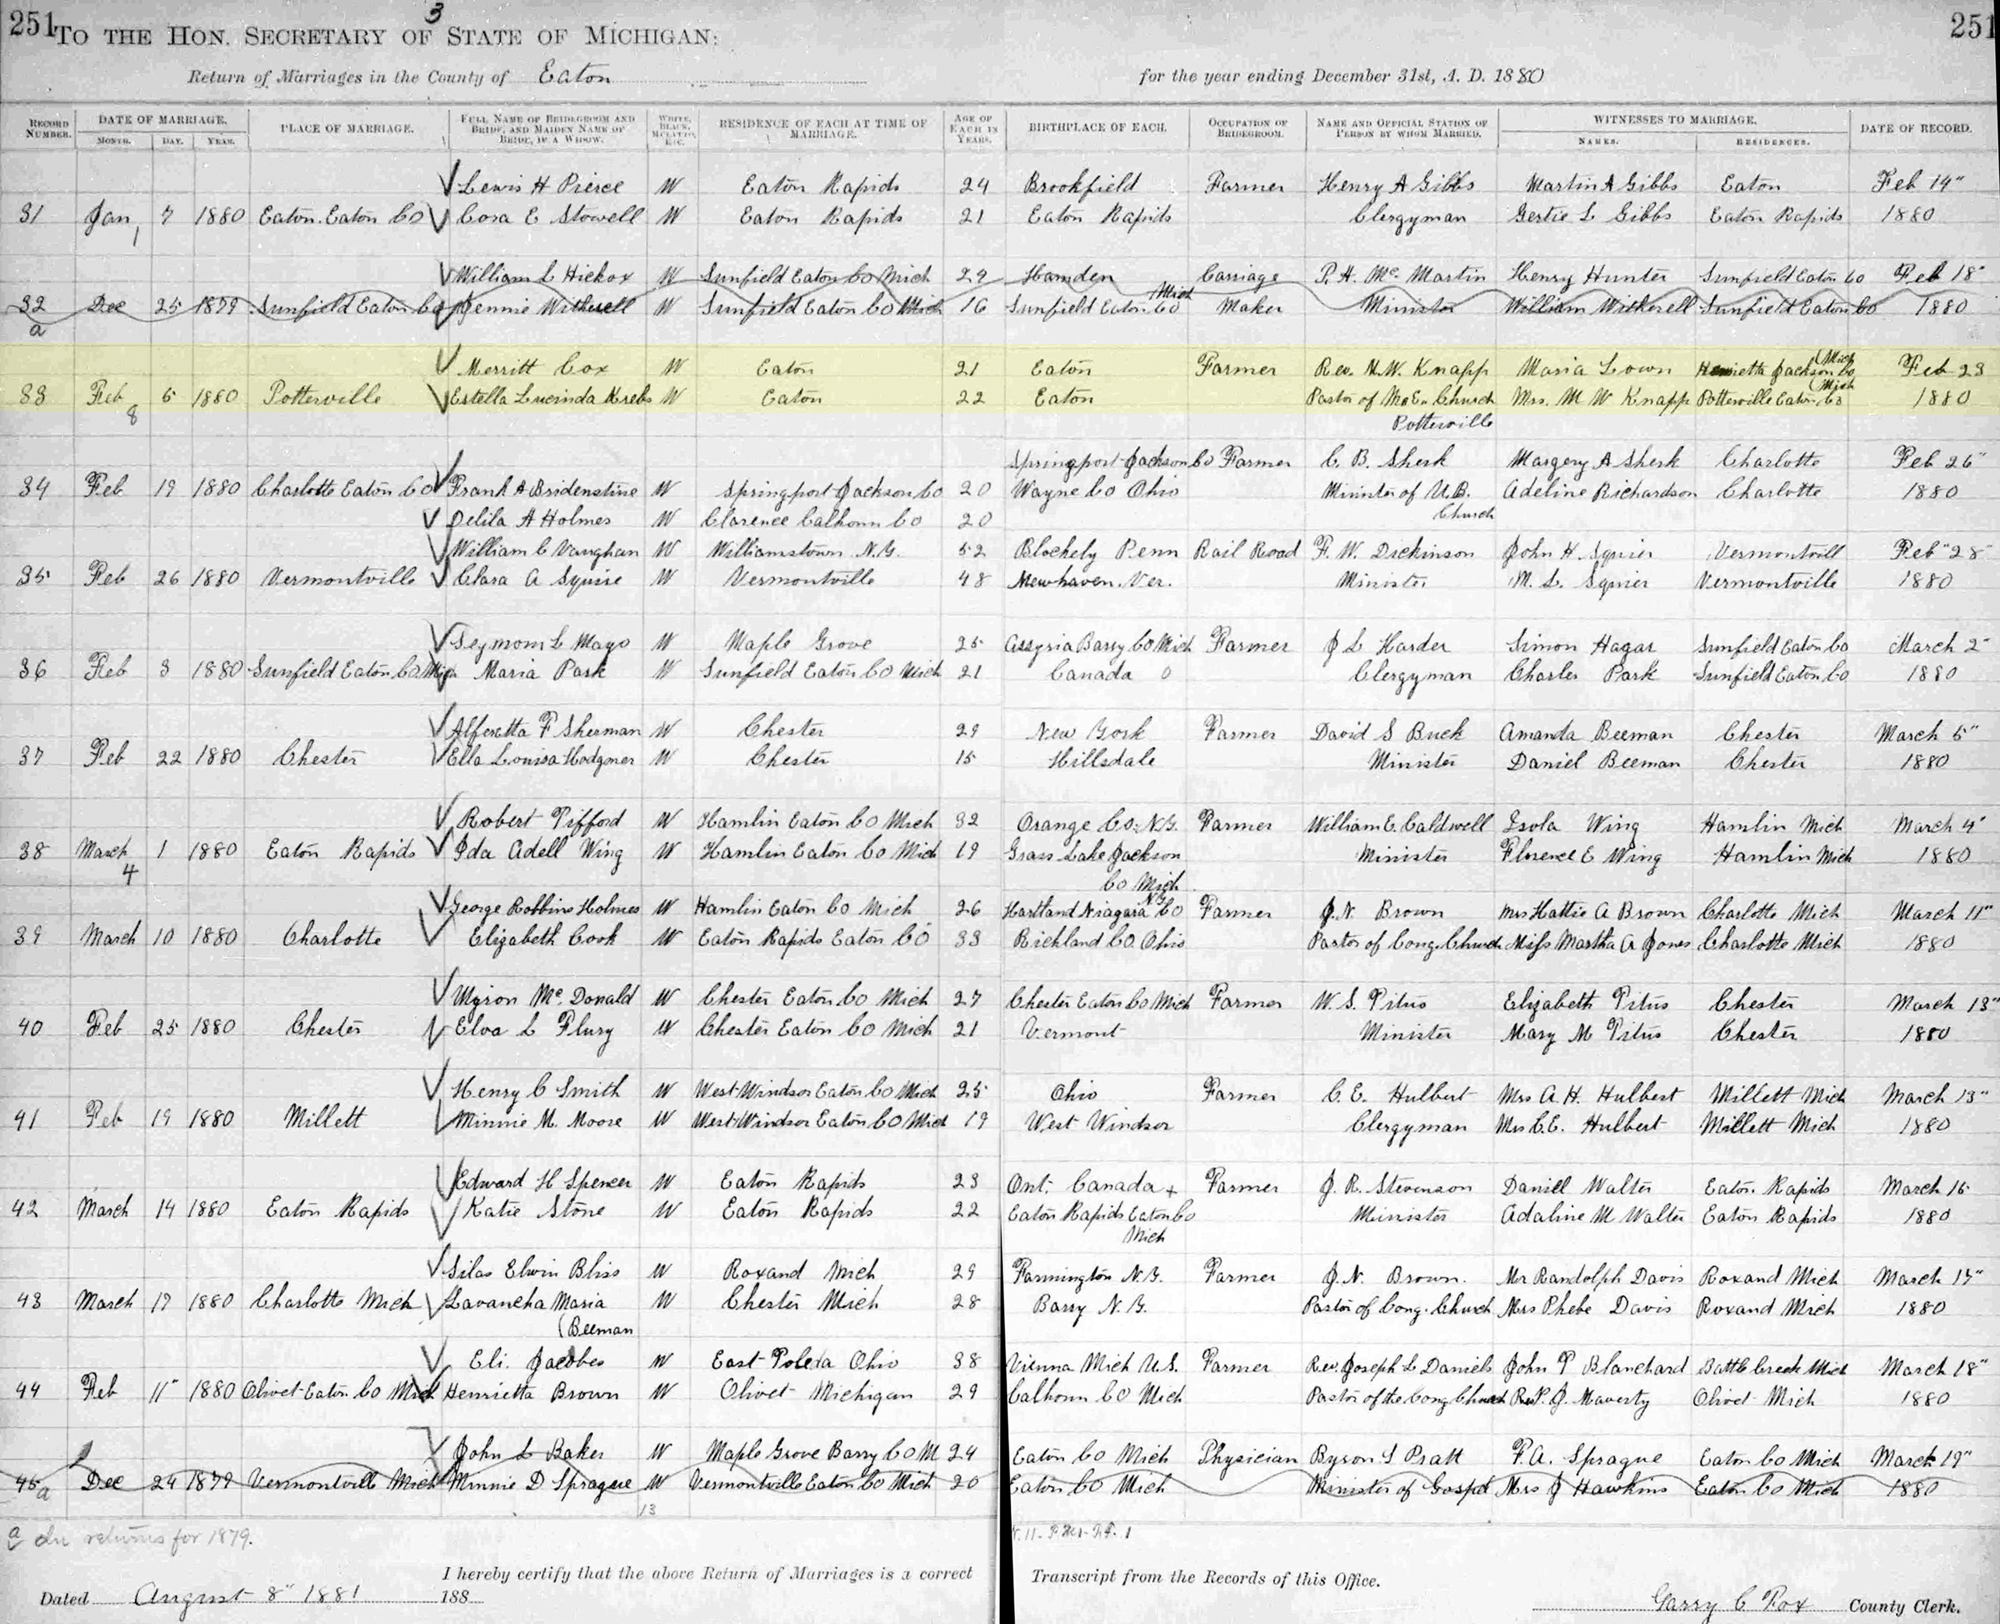 251 3 251
TO THE HON. SECRETARY OF STATE OF MICHIGAN:
Return of Marriages in the County of Eaton for the year ending December 31st, A. D. 1880
RECORD NUMBER. DATE OF MARRIAGE. MONTH. DAY. YEAR. PLACE OF MARRIAGE. FULL NAME OF BRIDEGROOM AND BRIDE, AND MAIDEN NAME OF BRIDE, IF A WIDOW. WHITE, BLACK, MULATTO, ETC. RESIDENCE OF EACH AT TIME OF MARRIAGE. AGE OF EACH IN YEARS. BIRTHPLACE OF EACH. OCCUPATION OF BRIDEGROOM. NAME AND OFFICIAL STATION OF PERSON BY WHOM MARRIED. WITNESSES TO MARRIAGE. NAMES. RESIDENCES. DATE OF RECORD.
Lewis H Pierce W Eaton Rapids 24 Brookfield Farmer Henry A Gibbs Martin A Gibbs Eaton Feb 14"
31 Jan 7 1880 Eaton Eaton Co Cora E Stowell W Eaton Rapids 21 Eaton Rapids Clergyman Gertie L Gibbs Eaton Rapids 1880
1
William L Hickox W Sunfield Eaton Co Mich 29 Hamden Carriage P. H. Mc Martin Henry Hunter Sunfield Eaton Co Feb 18"
32 Dec 25 1879 Sunfield Eaton Co Jennie Witherell W Sunfield Eaton Co Mich 16 Sunfield Eaton Co Mich Maker Minister William Witherell Sunfield Eaton Co 1880
a
Merritt Cox W Eaton 21 Eaton Farmer Rev. M. W. Knapp Maria Lown Henrietta Jackson Co Mich Feb 23
33 Feb 5 1880 Potterville Estella Lucinda Krebs W Eaton 22 Eaton Pastor of M. E. Church Mrs. M W Knapp Potterville Eaton Co Mich 1880
8 Potterville
Springport Jackson Co Farmer C. B. Sherk Margery A Sherk Charlotte Feb 26"
34 Feb 19 1880 Charlotte Eaton Co Frank A Bridenstine W Springport Jackson Co 20 Wayne Co Ohio Minister of U.B. Adeline Richardson Charlotte 1880
Delila A Holmes W Clarence Calhoun Co 20 Church
William C Vaughan W Williamstown N.Y. 52 Blockely Penn Rail Road F. W. Dickinson John H. Squier Vermontvill Feb "28"
35 Feb 26 1880 Vermontville Clara A Squire W Vermontville 48 Newhaven Ver. Minister M. L. Squier Vermontville 1880
Seymour L Mayo W Maple Grove 25 Assyria Barry Co Mich Farmer J L Harder Simon Hagar Sunfield Eaton Co March 2"
36 Feb 3 1880 Sunfield Eaton Co Mich Maria Park W Sunfield Eaton Co Mich 21 Canada O Clergyman Charles Park Sunfield Eaton Co 1880
Alferetta F Sherman W Chester 29 New York Farmer David S Buck Amanda Beeman Chester March 5"
37 Feb 22 1880 Chester Ella Louisa Hodgner W Chester 15 Hillsdale Minister Daniel Beeman Chester 1880
Robert Pifford W Hamlin Eaton Co Mich 32 Orange Co. N.Y. Farmer William E. Caldwell Isola Wing Hamlin Mich March 4"
38 March 1 1880 Eaton Rapids Ida Adell Wing W Hamlin Eaton Co Mich 19 Grass Lake Jackson Minister Florence E Wing Hamlin Mich 1880
4 Co Mich
George Robbins Holmes W Hamlin Eaton Co Mich 26 Hartland Niagara Co N.Y. Farmer J. N. Brown Mrs Hattie A Brown Charlotte Mich March 11"
39 March 10 1880 Charlotte Elizabeth Cook W Eaton Rapids Eaton Co 33 Richland Co. Ohio Pastor of Cong. Church Miss Martha A Jones Charlotte Mich 1880
Myron Mc Donald W Chester Eaton Co Mich 27 Chester Eaton Co Mich Farmer W. S. Titus Elizabeth Titus Chester March 13"
40 Feb 25 1880 Chester Elva L Flury W Chester Eaton Co Mich 21 Vermont Minister Mary M Titus Chester 1880
Henry C Smith W West Windsor Eaton Co Mich 25 Ohio Farmer C. E. Hulbert Mrs A. H. Hulbert Millett Mich March 13"
41 Feb 19 1880 Millett Minnie M. Moore W West Windsor Eaton Co Mich 19 West Windsor Clergyman Mrs C.E. Hulbert Millett Mich 1880
Edward H Spencer W Eaton Rapids 23 Ont. Canada + Farmer J. R. Stevenson Daniel Walter Eaton Rapids March 16
42 March 14 1880 Eaton Rapids Katie Stone W Eaton Rapids 22 Eaton Rapids Eaton Co Minister Adaline M Walter Eaton Rapids 1880
Mich
Silas Elwin Bliss W Roxand Mich 29 Farmington N.Y. Farmer J. N. Brown. Mr Randolph Davis Roxand Mich March 17"
43 March 17 1880 Charlotte Mich Lavancha Maria W Chester Mich 28 Barry N.Y. Pastor of Cong. Church Mrs Phebe Davis Roxand Mich 1880
(Beeman
Eli. Jacobes W East Toledo Ohio 38 Vienna Mich U.S. Farmer Rev. Joseph L Daniels John P Blanchard Battle Creek Mich March 18"
44 Feb 11" 1880 Olivet Eaton Co Mich Henrietta Brown W Olivet Michigan 29 Calhoun Co Mich Pastor of the Cong Church Rev P. J. Maverty Olivet Mich 1880
John L Baker W Maple Grove Barry Co M 24 Eaton Co Mich Physician Byron S Pratt F. A. Sprague Eaton Co Mich March 19"
45 Dec 24 1879 Vermontville Mich Minnie D Sprague W Vermontville Eaton Co Mich 20 Eaton Co Mich Minister of Gospel Mrs J Hawkins Eaton Co Mich 1880
a 13
a In returns for 1879.
I hereby certify that the above Return of Marriages is a correct Transcript from the Records of this Office.
Dated August 8" 1881 188 Garry C Fox County Clerk.